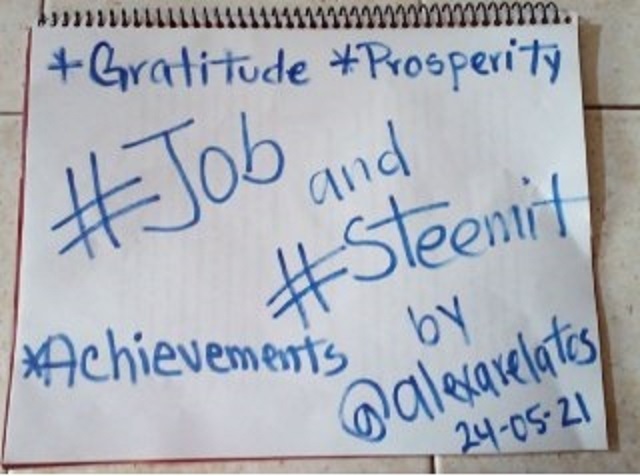 *Gratitude *Prosperity
#Job and
#Steemit
*Achievements by
@alexarelatos
24-05-21